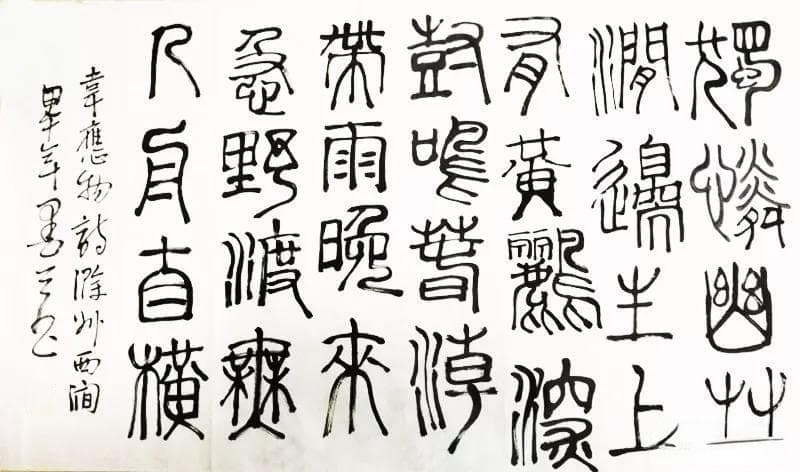 獨憐幽艸
澗邊生上
有黃鸝深
尌鳴春潮
帶雨晚來
急野渡無
人舟自橫
韋應物詩滁州西澗
年